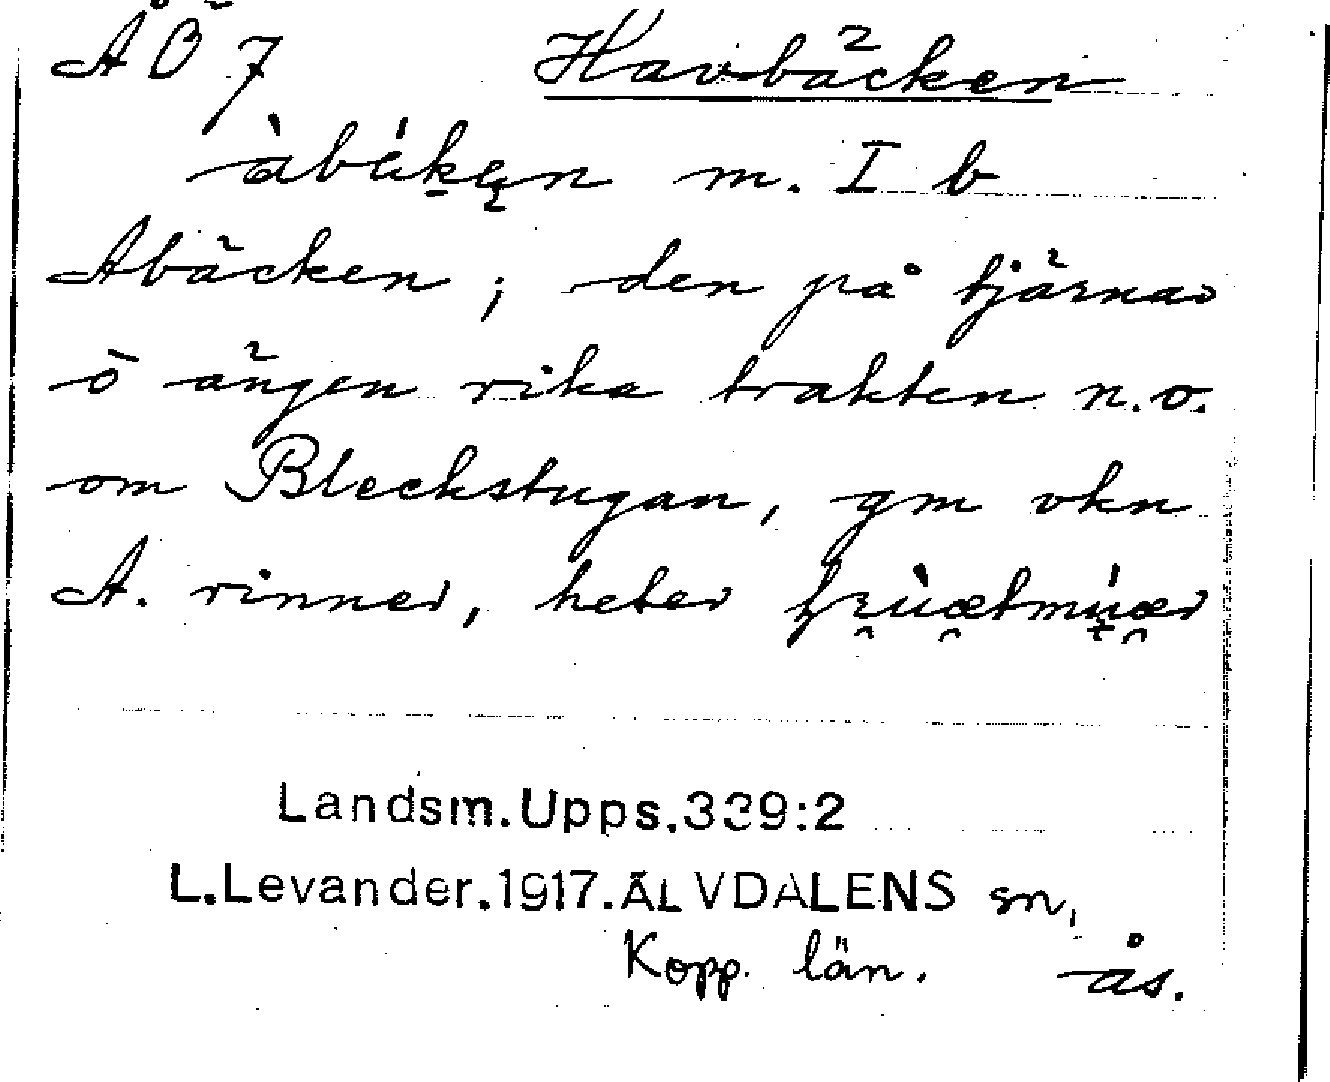 ÅÖ 7 Havbäcken
àbä́ken m. I b
Abäcken; den på tjärnar
o ängen rika trakten n.o.
om Bleckstugan, gm vkn
A. rinner, heter
Landsm.Upps.339:2
L.Levander.1917.ÄLVDALENS sn,
Kopp. län. ås.